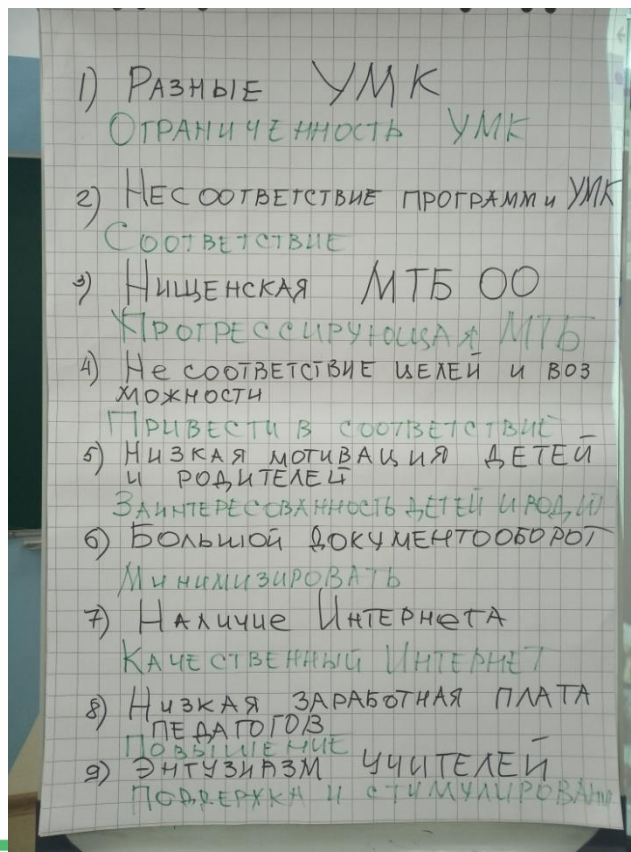 1) РАЗНЫЕ УМК
ОГРАНИЧЕННОСТЬ УМК
2) НЕСООТВЕТСТВИЕ ПРОГРАММ и УМК
СООТВЕТСТВИЕ
3) НИЩЕНСКАЯ МТБ ОО
ПРОГРЕССИРУЮЩАЯ МТБ
4) Не СООТВЕТСТВИЕ ЦЕЛЕЙ И ВОЗ
МОЖНОСТИ
ПРИВЕСТИ В СООТВЕТСТВИЕ
5) НИЗКАЯ МОТИВАЦИЯ ДЕТЕЙ
И РОДИТЕЛЕЙ
ЗАИНТЕРЕСОВАННОСТЬ ДЕТЕЙ И РОДИТ
6) БОЛЬШОЙ ДОКУМЕНТООБОРОТ
МИНИМИЗИРОВАТЬ
7) НАЛИЧИЕ ИНТЕРНЕТА
КАЧЕСТВЕННЫЙ ИНТЕРНЕТ
8) НИЗКАЯ ЗАРАБОТНАЯ ПЛАТА
ПЕДАГОГОВ
ПОВЫШЕНИЕ
9) ЭНТУЗИАЗМ УЧИТЕЛЕЙ
ПОДДЕРЖКА И СТИМУЛИРОВАНИЕ